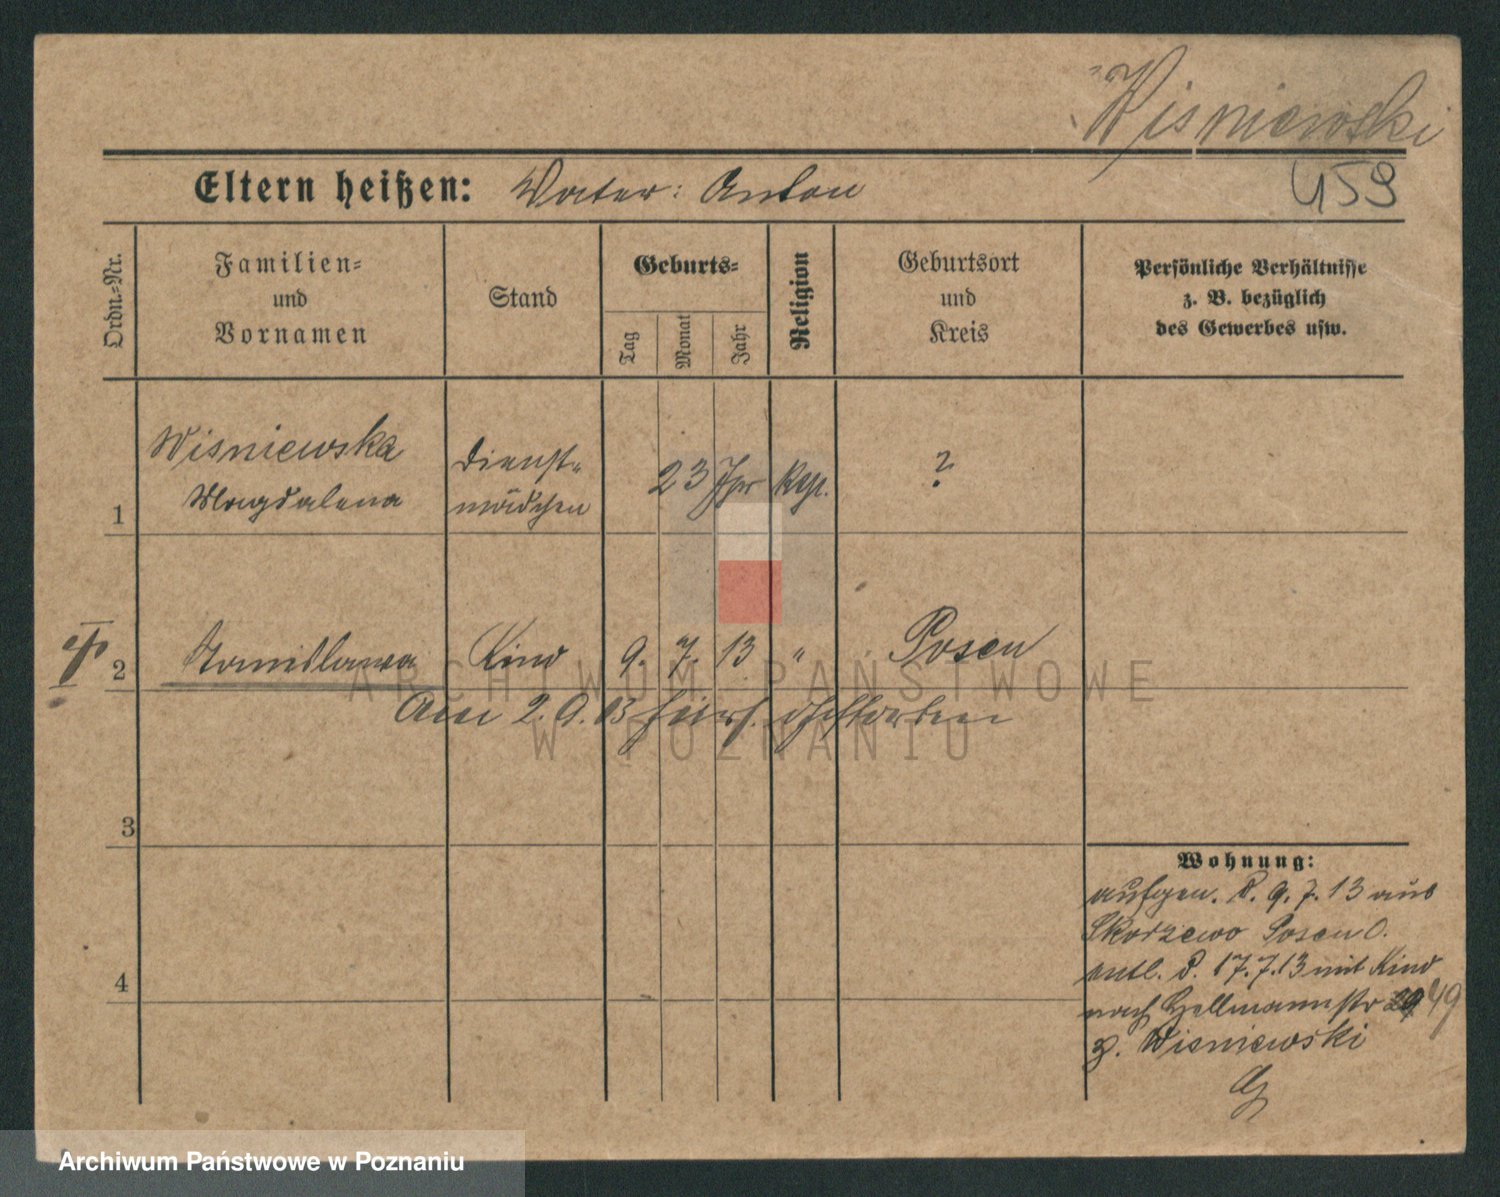 Wisniewski
Eltern heißen: Vater: Anton 459
Ordn.-Nr.
Familien-
und
Vornamen
Stand
Geburts-
Tag
Monat
Jahr
Religion
Geburtsort
und
Kreis
Persönliche Verhältnisse
z. B. bezüglich
des Gewerbes usw.
Wisniewska Dienst-
1 Magdalena mädchen 23 Jhr ?
2 Stanislawa Kind 9. 7. 13 " Posen
Am 2. 9. 13 hier gestorben
3
Wohnung:
aufgen. d. 9. 7. 13 aus
Skorzewo Posen O.
entl. d. 17. 7. 13 mit Kind
4
nach Hellmannstr 49
z. Wisniewski
ARCHIWUM PAŃSTWOWE
W POZNANIU
Archiwum Państwowe w Poznaniu